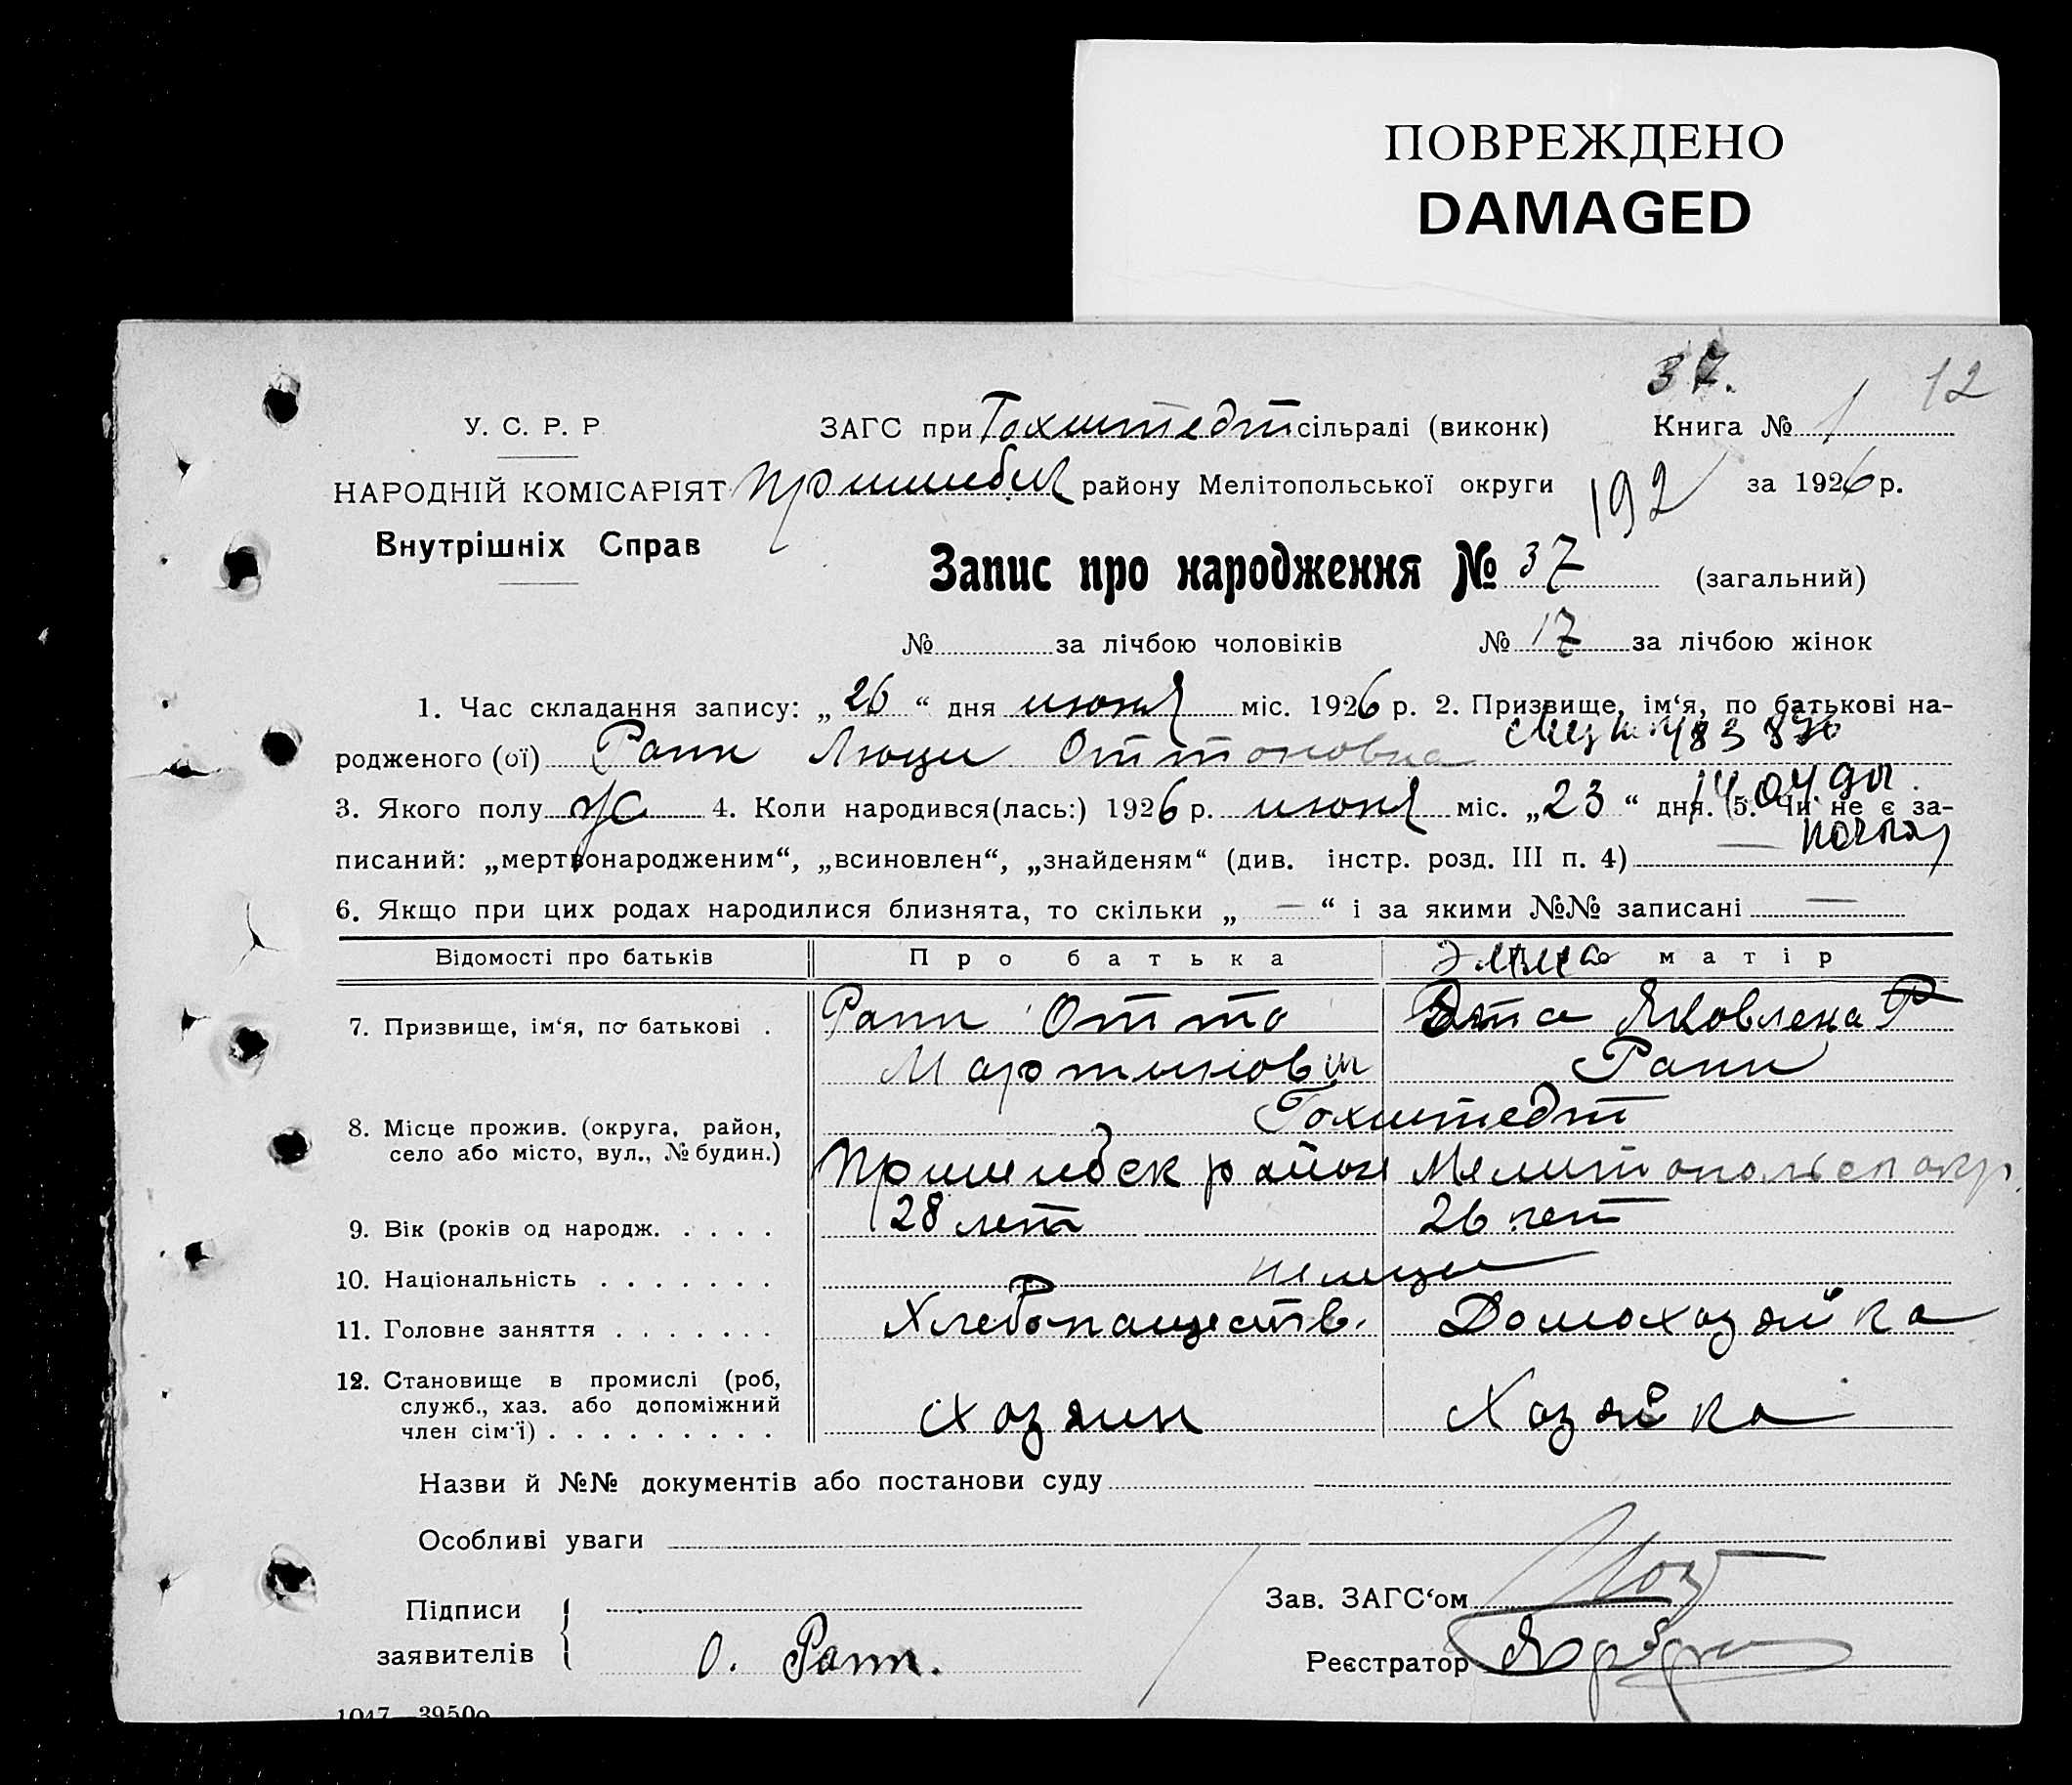 ПОВРЕЖДЕНО
DAMAGED
37.
12
У. С. Р. Р
ЗАГС при Гохштедт сільраді (виконк)
Книга № 1
НАРОДНІЙ КОМІСАРІЯТ
Пришибск району Мелітопольської округи
192
за 1926 р.
Внутрішніх Справ
Запис про народження № 37 (загальний)
№ за лічбою чоловіків № 17 за лічбою жінок
1. Час складання запису: „ 26 “ дня июня міс. 1926 р. 2. Призвище, ім‘я, по батькові на-
родженого (ої) Рапп Люци Оттоновна
3. Якого полу ж 4. Коли народився(лась:) 1926 р. июня міс. „ 23 “ дня. 5. Чи не є за-
14.04.90
писаний: „мертвонародженим“, „всиновлен“, „знайденям“ (див. інстр. розд. III п. 4) —
6. Якщо при цих родах народилися близнята, то скільки „ — “ і за якими №№ записані —
Відомості про батьків
Про батька
матір
7. Призвище, ім‘я, по батькові .
Рапп Отто
Яковлена
Мартинович
Рапп
8. Місце прожив. (округа, район,
село або місто, вул., № будин.)
Гохштедт
Пришибск район Мелитопольск окр.
9. Вік (років од народж. . . . .
28 лет
26 лет
10. Національність . . . . . . .
немцы
11. Головне заняття . . . . . . .
Хлебопашеств.
Домохозяйка
12. Становище в промислі (роб,
служб., хаз. або допоміжний
член сім‘ї) . . . . . . . . .
хозяин
Хозяйка
Назви й №№ документів або постанови суду
Особливі уваги
Підписи
заявителів
О. Рапп.
Зав. ЗАГС‘ом
Реєстратор
1047 3950о